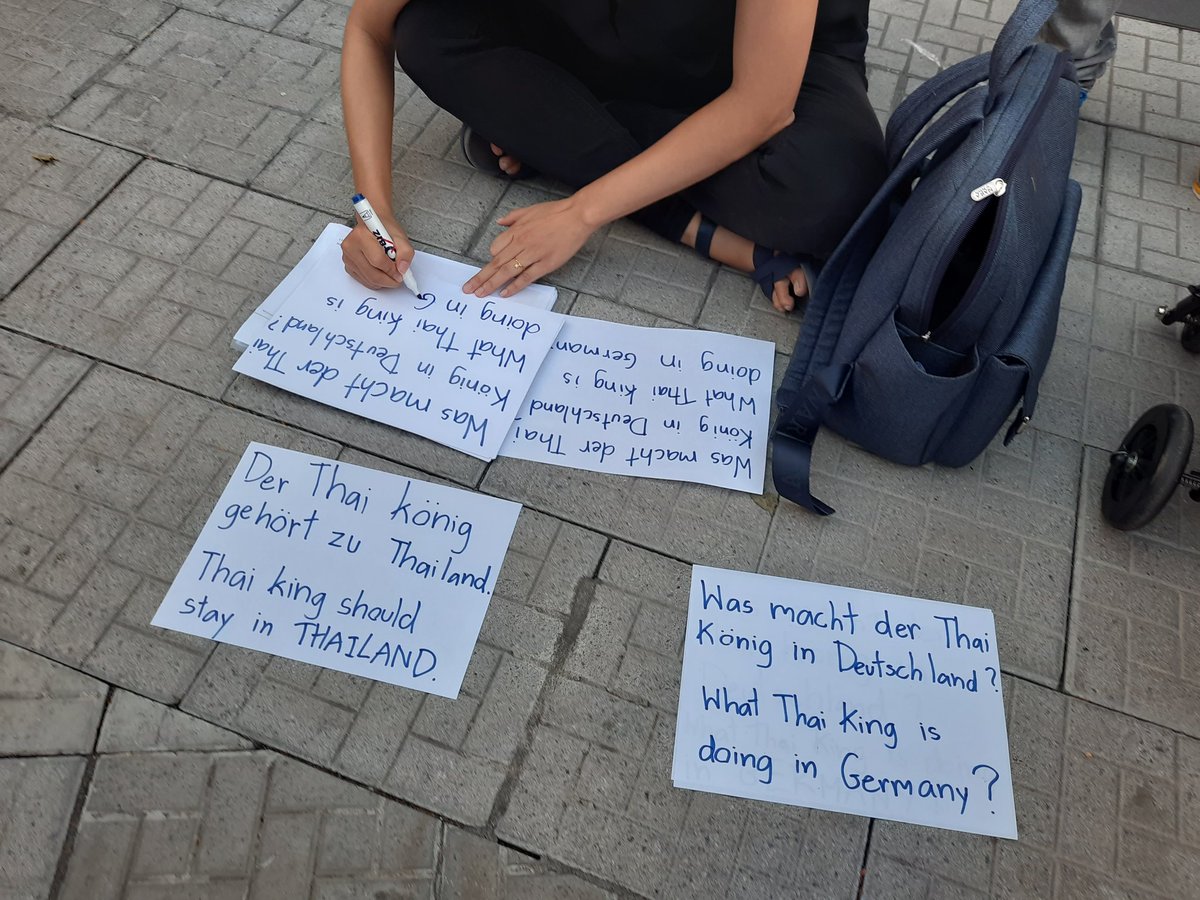 Was macht der Thai
König in Deutschland?
What Thai king is
doing in G
Was macht der Thai
König in Deutschland
What Thai king is
doing in German
Der Thai könig
gehört zu Thailand.
Thai king should
stay in THAILAND.
Was macht der Thai
König in Deutschland?
What Thai King is
doing in Germany?